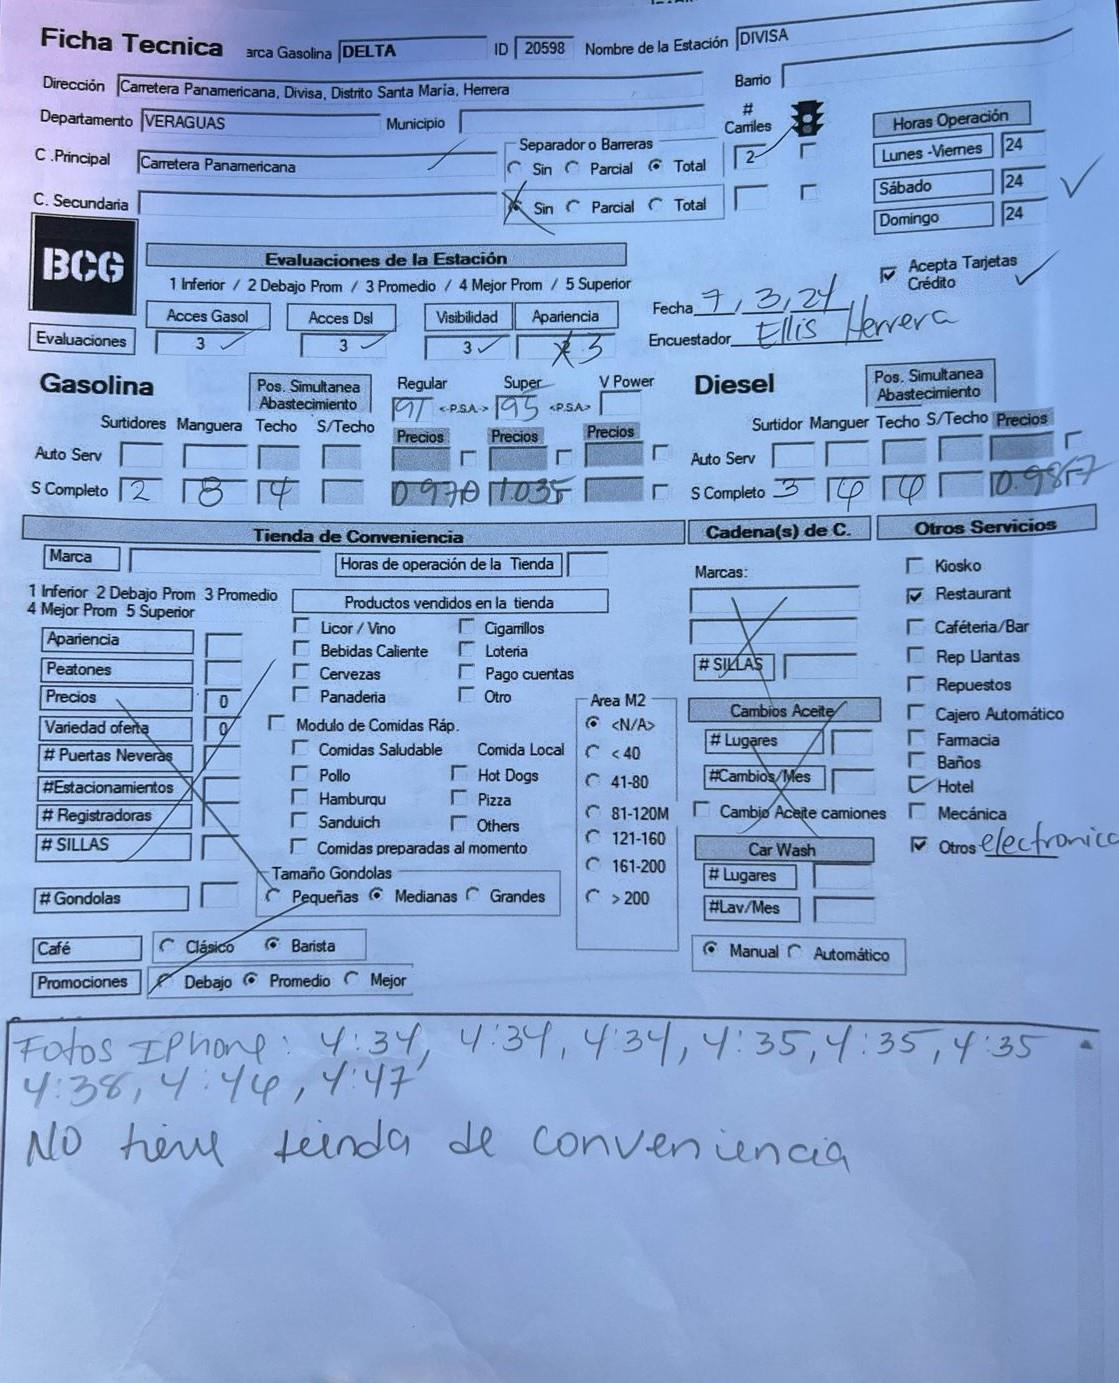 Ficha Tecnica arca Gasolina DELTA ID 20598 Nombre de la Estación DIVISA
Dirección Carretera Panamericana, Divisa, Distrito Santa María, Herrera Barrio
Departamento VERAGUAS Municipio # Carriles Horas Operación
C .Principal Carretera Panamericana Separador o Barreras Sin Parcial Total 2 Lunes -Viernes 24
C. Secundaria Sin Parcial Total Sábado 24
Domingo 24
BCG
Evaluaciones de la Estación
1 Inferior / 2 Debajo Prom / 3 Promedio / 4 Mejor Prom / 5 Superior
Acepta Tarjetas Crédito
Fecha 7, 3, 24
Encuestador Ellis Herrera
Acces Gasol Acces Dsl Visibilidad Apariencia
Evaluaciones 3 3 3 3
Gasolina Pos. Simultanea Abastecimiento Regular Super V Power
91 <-P.S.A.-> 95 <P.S.A>
Surtidores Manguera Techo S/Techo Precios Precios Precios
Auto Serv
S Completo 2 8 4 0.970 1.035
Diesel Pos. Simultanea Abastecimiento
Surtidor Manguer Techo S/Techo Precios
Auto Serv
S Completo 3 4 4
Tienda de Conveniencia
Marca Horas de operación de la Tienda
1 Inferior 2 Debajo Prom 3 Promedio
4 Mejor Prom 5 Superior
Productos vendidos en la tienda
Apariencia Licor / Vino Cigarrillos
Peatones Bebidas Caliente Loteria
Precios 0 Cervezas Pago cuentas
Panaderia Otro
Variedad oferta 0 Modulo de Comidas Ráp.
# Puertas Neveras Comidas Saludable Comida Local
#Estacionamientos Pollo Hot Dogs
# Registradoras Hamburqu Pizza
# SILLAS Sanduich Others
Comidas preparadas al momento
# Gondolas Tamaño Gondolas Pequeñas Medianas Grandes
Café Clásico Barista
Promociones Debajo Promedio Mejor
Area M2
<N/A>
< 40
41-80
81-120M
121-160
161-200
> 200
Cadena(s) de C.
Marcas:
# SILLAS
Cambios Aceite
# Lugares
#Cambios/Mes
Cambio Aceite camiones
Car Wash
# Lugares
#Lav/Mes
Manual Automático
Otros Servicios
Kiosko
Restaurant
Caféteria/Bar
Rep Llantas
Repuestos
Cajero Automático
Farmacia
Baños
Hotel
Mecánica
Otros electronica
Fotos IPhone: 4:34, 4:34, 4:34, 4:35, 4:35, 4:35
4:38, 4:44, 4:47
No tiene tienda de conveniencia